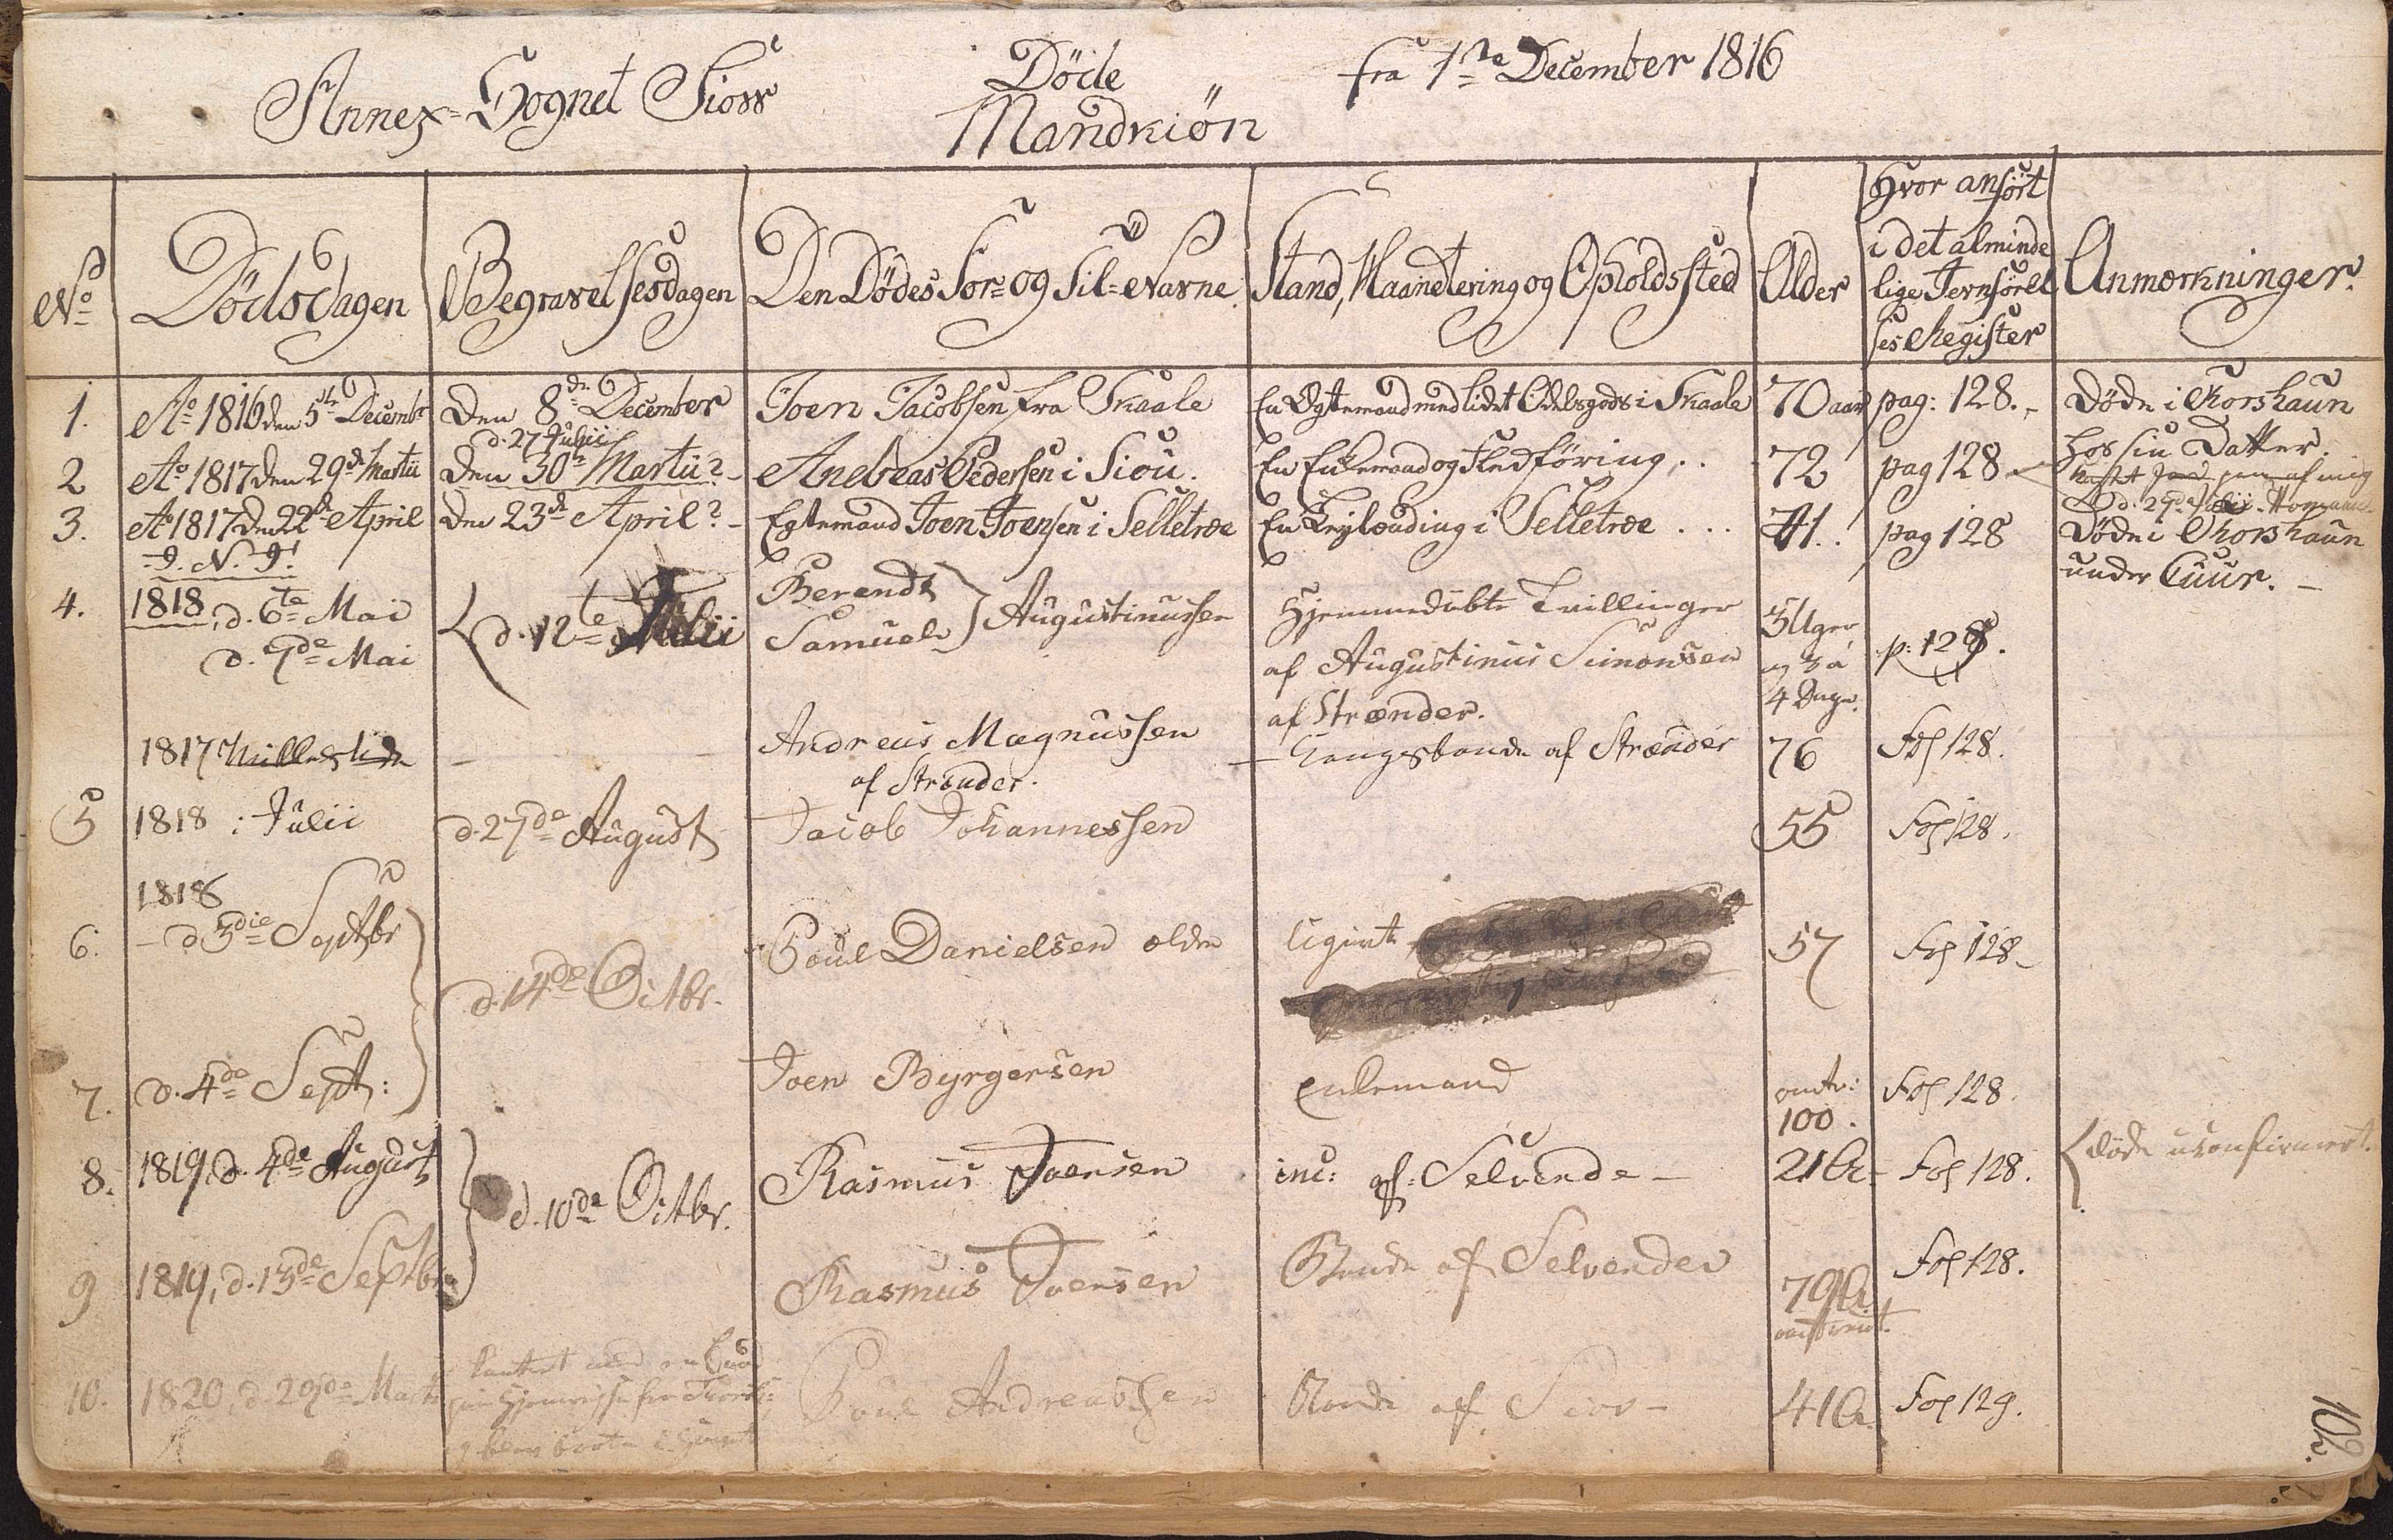 Annex-Sognet Siow
Døde
Mandkiön
fra 1ste December 1816
No
Dödsdagen
Begravelsesdagen
Den Dödes For- og Til-Navne
Stand, Haandtering og Opholdssted
Alder
Hvor anført
i det alminde
lige Jevnførel
ses Register
Anmærkninger.
1. Ao 1816 den 5te Decembr Den 8de December Joen Jacobsen fra Skaale En Ægtemand med lidet Odelsgods i Skaale 70 aar pag: 128. Døde i Thorshaun
hos sin Datter.
d. 27 Julii
2 Ao 1817 den 29de Martii Den 30te Martii? Andreas Pedersen i Siou. En Enkemand og Fledføring .. 72 pag 128 kastet Jord paa af mig
d. 27de Julii
3. Ao 1817 den 22de April Den 23de April? Egtemand Joen Joensen i Selletræ En Leylænding i Selletræ ... 41. pag 128 Døde i Thorshaun
under Cuur.
4. 1818, d. 6te Mai
d. 9de Mai
d. 12te Julii
Berendt
Samuel } Augustinussen
Hjemmedøbte Tvillinger
af Augustinus Simonsen
af Strænder.
3 Uger
og 3 a
4 Dage.
p: 128.
1817 Andreas Magnussen
af Strænder.
Kongsbonde af Strænder 76 Fol 128.
5 1818 i Julii d. 27de August Jacob Johannessen 55 Fol 128.
1818
6. d 3die Septbr d. 14de Octbr. Poul Danielsen ældre Ugivt 57 Fol 128
7. d. 4de Sept: Joen Byrgersen Enkemand omtr:
100. Fol 128.
8. 1819, d. 4de August d. 10de Octbr. Rasmus Joensen af Selvende 21 A. Fol 128. døde ukonfirmert.
9 1819, d. 13de Septbr. Rasmus Joensen Bonde af Selvender 79 A Fol 128.
10. 1820, d. 29de Marti Poul Andreassen Bonde af Siov 41 A. Fol 129.
102.